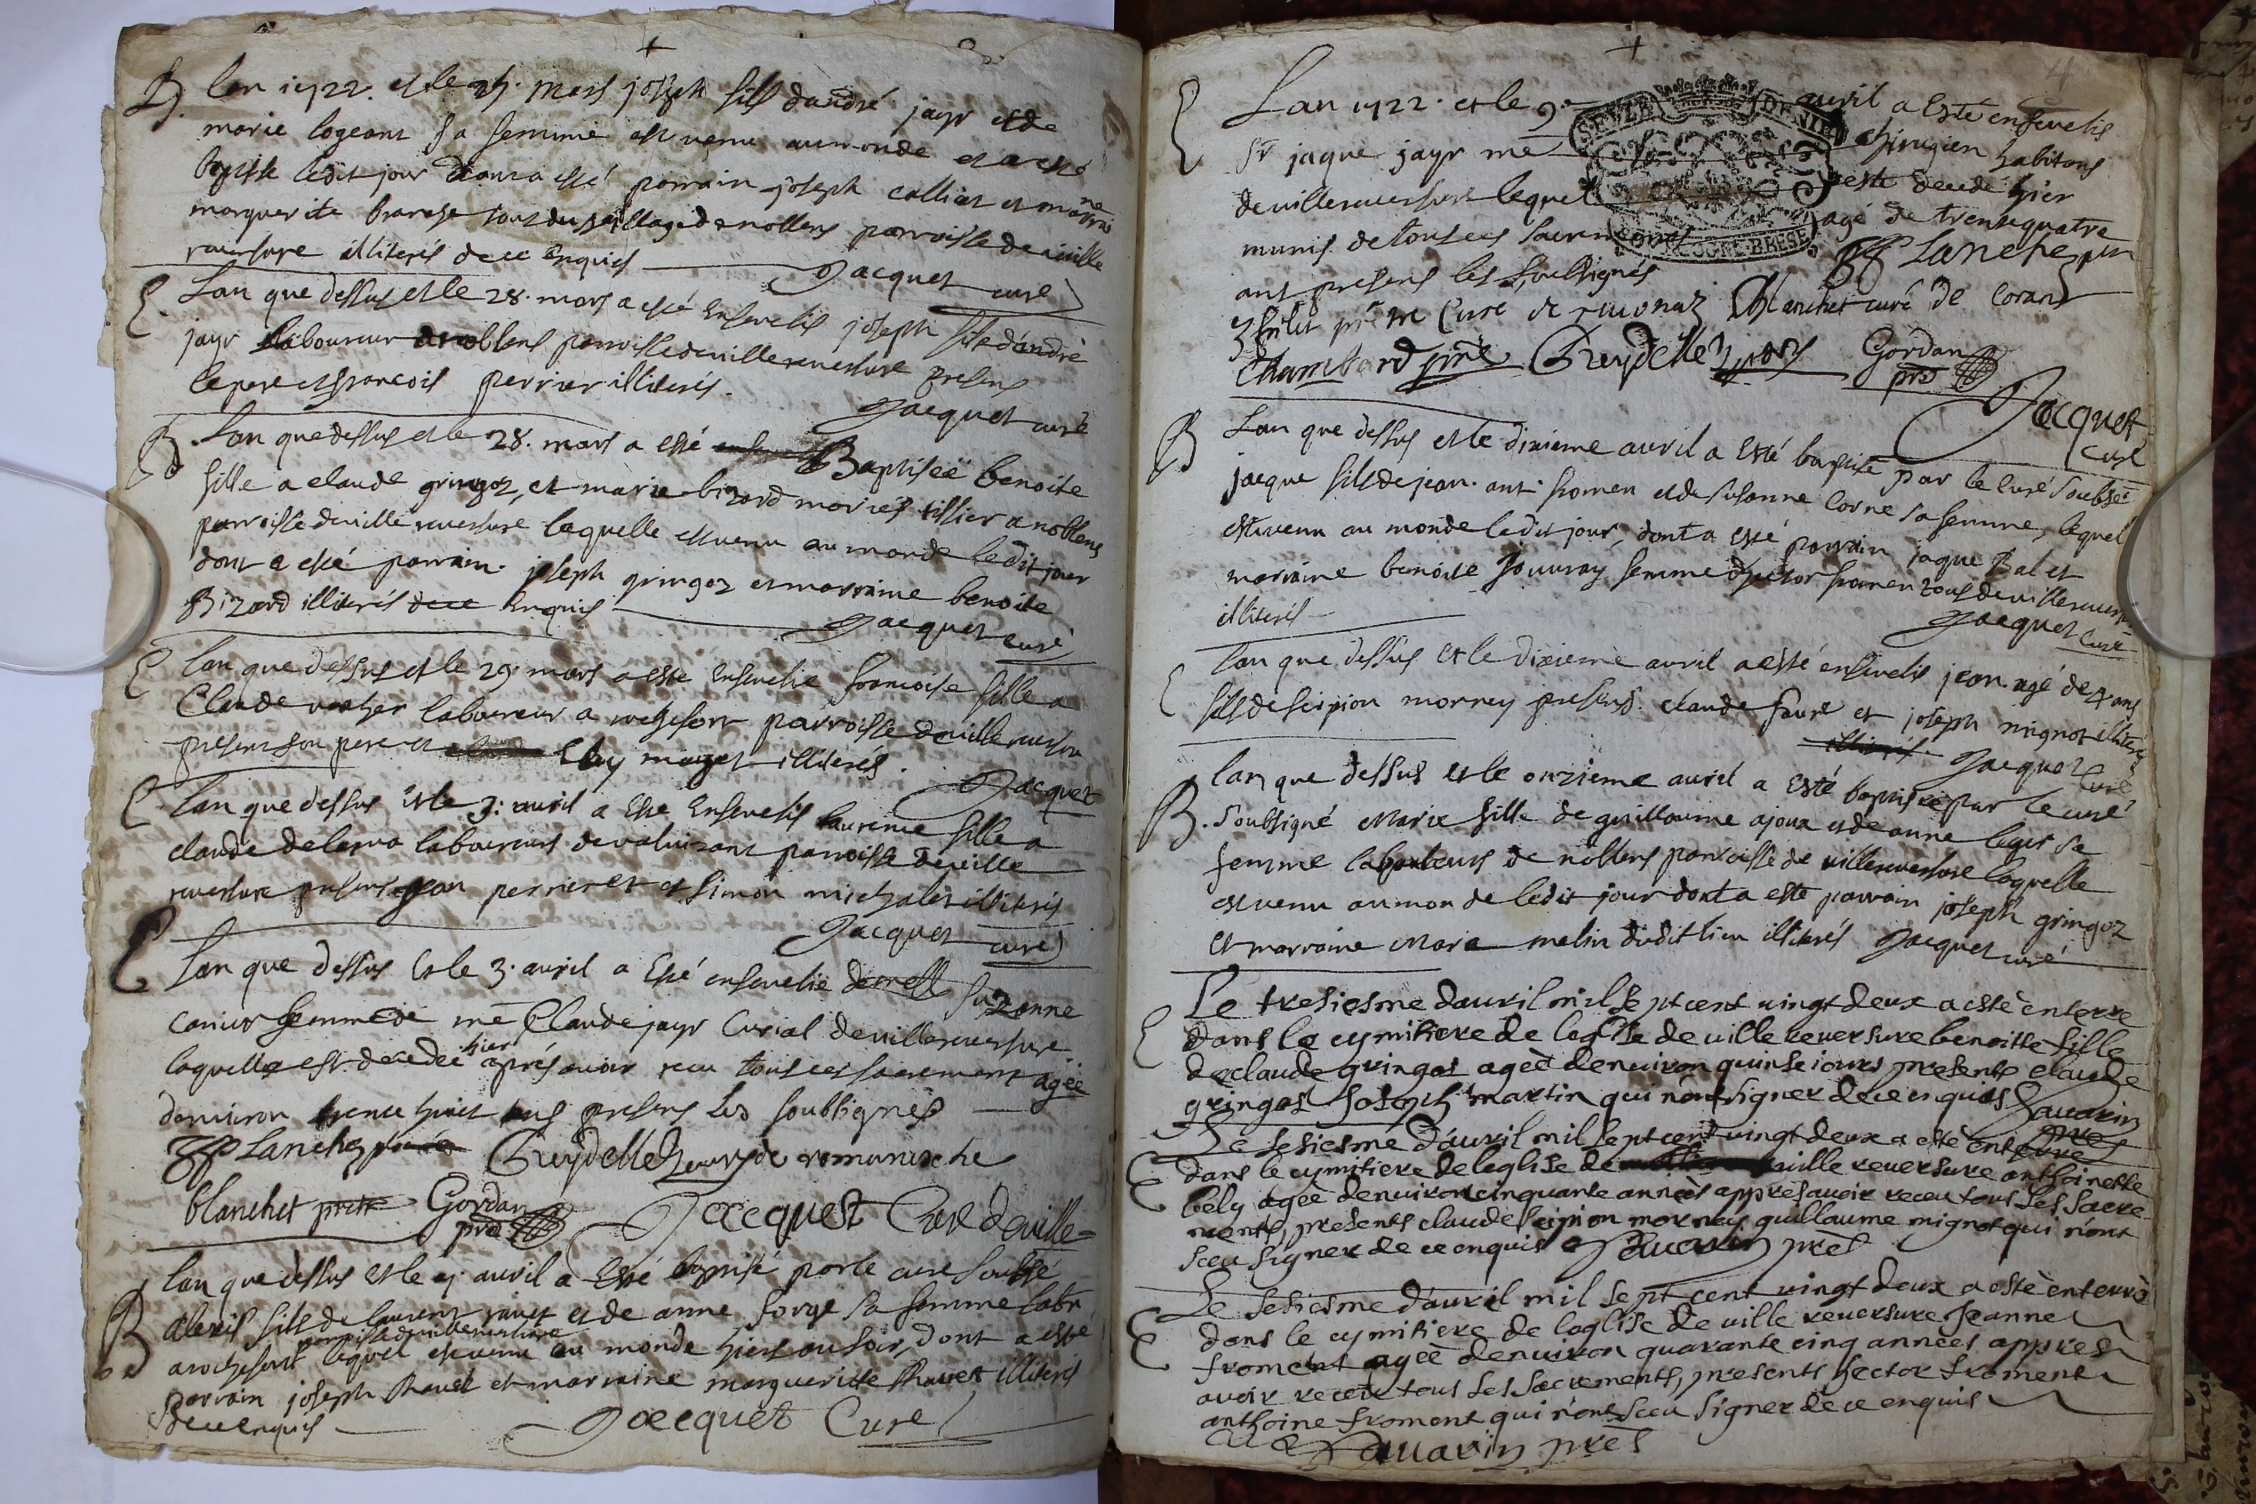 B. Lan 1722. et le 25. mars joseph fils dandré jayr et de
marie logeant sa femme est venu au monde et a esté
baptisé ledit jour dont a esté parrain joseph colliat et marraine
marguerite tous du village de noblens parroisse de ville
reversure illiterés de ce enquis
Jacquet curé
E. Lan que dessus et le 28. mars a esté ensevelis joseph fils dandré
jayr laboureur a noblens parroisse de villereversure presens
le pere et francois perrier illiterés.
Jacquet curé
B. Lan que dessus et le 28. mars a esté Baptiseé benoite
fille a claude gringoz, et marie bizord mariés tissier a noblens
parroisse de ville reversure laquelle est venu au monde ledit jour
dont a esté parrain. joseph gringoz et marraine benoite
Bizard illiterés de ce enquis
Jacquet curé
E Lan que dessus et le 29 mars a este ensevelie francoise fille a
Claude laboureur a rochefort parroisse de ville reversure
present son pere et Eloy illiterés.
Jacquet
E. Lan que dessus et le 3. avril a esté ensevelis laurence fille a
claude laboureurs de parroisse de ville
reversure presens jean perrier et simon illiterés
Jacquet curé
E Lan que dessus et le 3. avril a esté ensevelie demelle suzanne
femme de me Claude jayr Curial de villereversure
laquelle est decedée hier aprés avoir receu tous ces sacrement agée
denviron trente huict ans presens les soubsignés
Lanchez Gruydellet curé de romaneche
blanchet prtre Gordan pre Jacquet Curé de ville=
B Lan que dessus et le avril a Esté baptisé par le curé soubsé
alexis fils de laurent ravet et de anne forge sa femme labr
a rochefort parroisse de villereversure lequel est venu au monde hiers au soir, dont a esté
parrain joseph Ravet et marraine marguerite Ravet illiterés
de ce enquis
Jacquet Curé
4
E Lan 1722. et le 9e avril a Esté ensevelis
Sr jaque jayr me chirugien habitans
de villereversure lequel est decedé hier
munis de tous ces sacrements agé de trente quatre
ans presens les soubsignés Lanchez
curé de Blanchet curé de Corant
Chambard pre Gruydellet Gordan
pre
Jacquet
Curé
SEIZE DENIERS
BOURGOGNE BRESSE
B Lan que dessus et le dixieme avril a Esté baptisé par le curé soubsé
jacque fils de jean. ant. fromen et de susanne Corne sa femme, lequel
est venu au monde ledit jour, dont a esté parrain jaque Bal et
marraine benoite Jouvray femme d'hector fromen tous de villereversure
illiterés
Jacquet Curé
E Lan que dessus et le dixieme avril a esté ensevelis jean agé de 4 ans
fils de scipion morney presens. claude faure et joseph mignot illiterés
Jacquet Curé
B. Lan que dessus et le onzieme avril a Esté baptisée par le curé
soubsigné Marie fille de guillaume ajoux et de anne leger sa
femme laboureurs de noblens parroisse de villereversure laquelle
est venu au monde ledit jour dont a esté parrain joseph gringoz
et marraine Marie melin dudit lieu illiterés Jacquet curé
E Le tresiesme davril mil sept cent vingt deux a esté enterre
dans le cymitiere de leglise de ville reversure benoitte fille
de claude gringos ageè denviron quinse iours presents claude
gringos Joseph martin qui n'ont signer de ce enquis Savarin
pre
E Le sesiesme d'avril mil sept cent vingt deux a esté enterre
dans le cymitiere de leglise de ville reversure anthoinette
bely ageè denviron cinquante années appres avoir receu tous ses sacre
ments, presents claude scipion morney guillaume mignot qui n'ont
sceu signer de ce enquis Savarin pre
E Le sesiesme d'avril mil sept cent vingt deux a esté enterrè
dans le cymitiere de leglise de ville reversure Jeanne
froment ageè denviron quarante cinq années appres
avoir receu tous ses sacrements, presents hector froment
anthoine froment qui n'ont sceu signer de ce enquis
Savarin pre